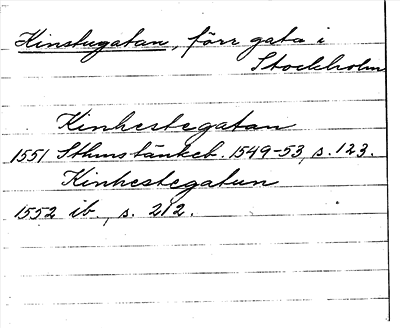 Kinstugatan, förr gata i
Stockholm.
Kinhestegatan
1551 Sthms tänkeb. 1549-53, s. 123.
Kinhestegatun
1552 ib., s. 212.